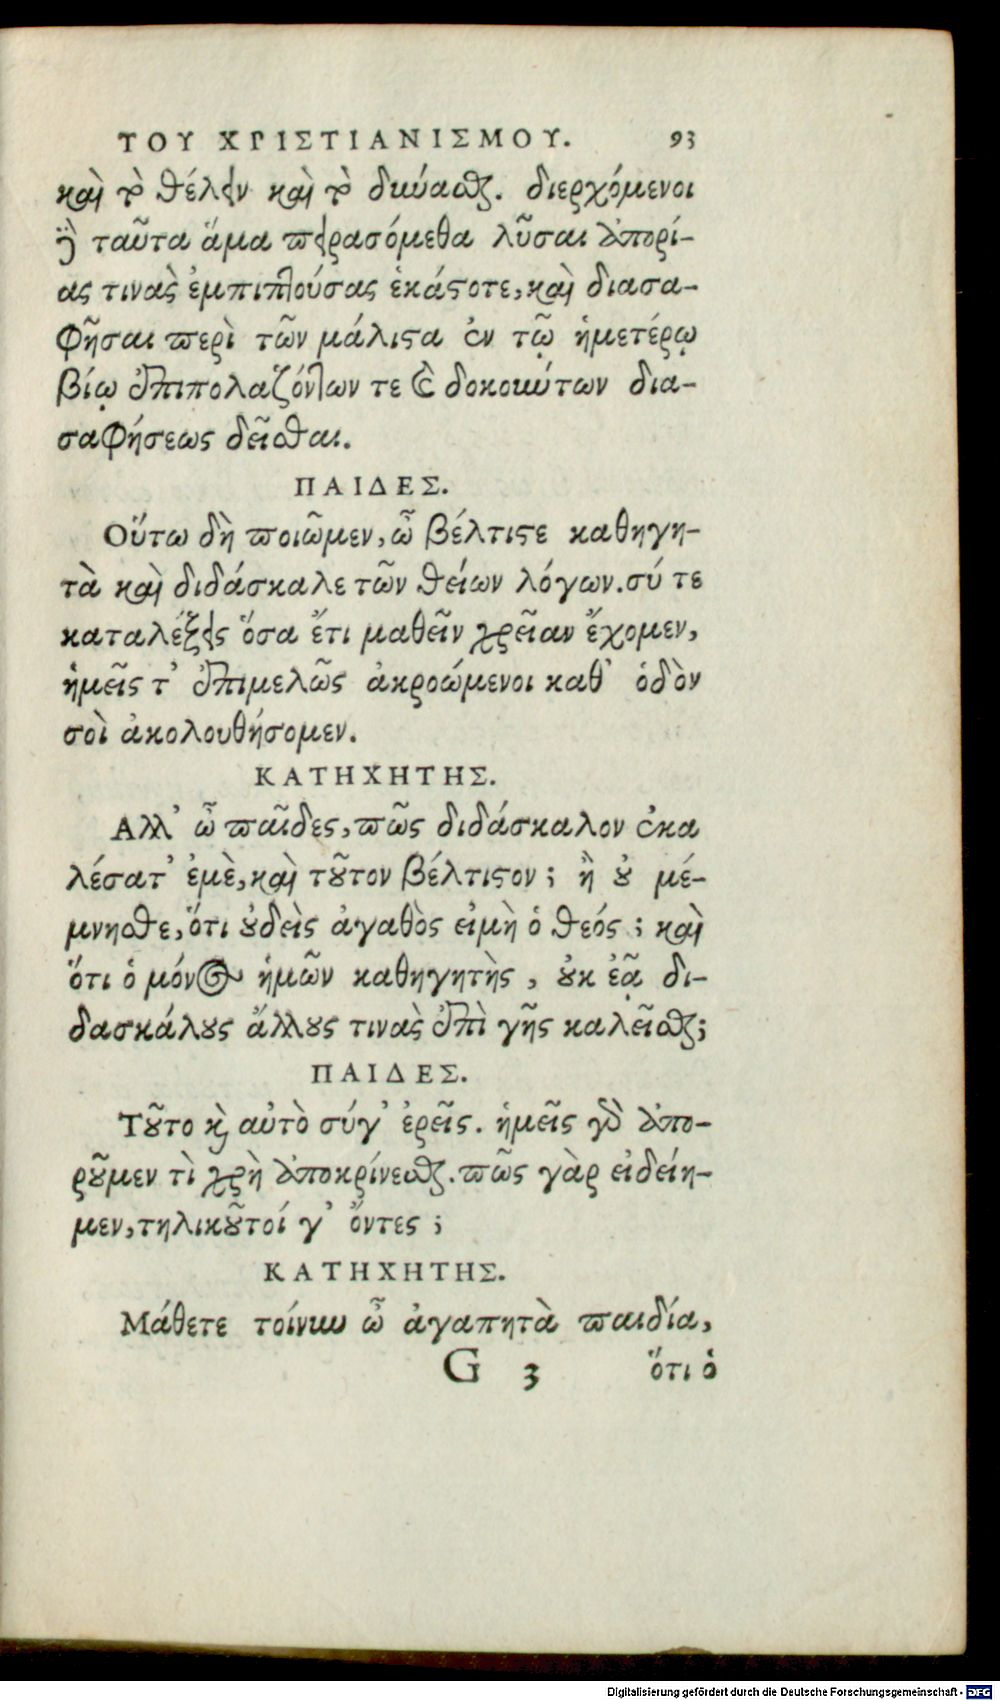 ΤΟΥ ΧΡΙΣΤΙΑΝΙΣΜΟΥ. 93
καὶ τὸ θέλειν καὶ τὸ δύνασθαι. διερχόμενοι
δὲ ταῦτα ἅμα πειρασόμεθα λῦσαι ἀπορί-
ας τινὰς ἐμπιπτούσας ἑκάστοτε, καὶ διασα-
φῆσαι περὶ τῶν μάλιστα ἐν τῷ ἡμετέρῳ
βίῳ ἐπιπολαζόντων τε καὶ δοκούντων δια-
σαφήσεως δεῖσθαι.
ΠΑΙΔΕΣ.
Οὕτω δὴ ποιῶμεν, ὦ βέλτιστε καθηγη-
τὰ καὶ διδάσκαλε τῶν θείων λόγων. σύ τε
καταλέξεις ὅσα ἔτι μαθεῖν χρείαν ἔχομεν,
ἡμεῖς τ' ἐπιμελῶς ἀκροώμενοι καθ' ὁδὸν
σοὶ ἀκολουθήσομεν.
ΚΑΤΗΧΗΤΗΣ.
Αλλ' ὦ παῖδες, πῶς διδάσκαλον ἐκα
λέσατ' ἐμὲ, καὶ τοῦτον βέλτιστον; ἢ οὐ μέ-
μνησθε, ὅτι οὐδεὶς ἀγαθὸς εἰμὴ ὁ θεός; καὶ
ὅτι ὁ μόνος ἡμῶν καθηγητὴς, οὐκ ἐᾷ δι-
δασκάλους ἄλλους τινὰς ἐπὶ γῆς καλεῖσθαι;
ΠΑΙΔΕΣ.
Τοῦτο καὶ αὐτὸ σύγ' ἐρεῖς. ἡμεῖς γὰρ ἀπο-
ροῦμεν τὶ χρὴ ἀποκρίνεσθαι. πῶς γὰρ εἰδείη-
μεν, τηλικοῦτοί γ' ὄντες;
ΚΑΤΗΧΗΤΗΣ.
Μάθετε τοίνυν ὦ ἀγαπητὰ παιδία,
G 3 ὅτι ὁ
Digitalisierung gefördert durch die Deutsche Forschungsgemeinschaft - DFG